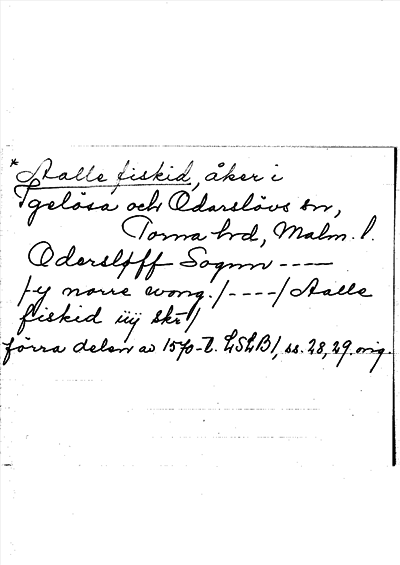 *Aalle fiskid, åker i
Igelösa och Odarslövs sn,
Torna hrd, Malm. l.
Odersløff Sognn ----
/-y norre wong./----/ Aalle
fiskid iiij skr/
förra delen av 1570-t. LSLB1, ss. 28, 29. orig.